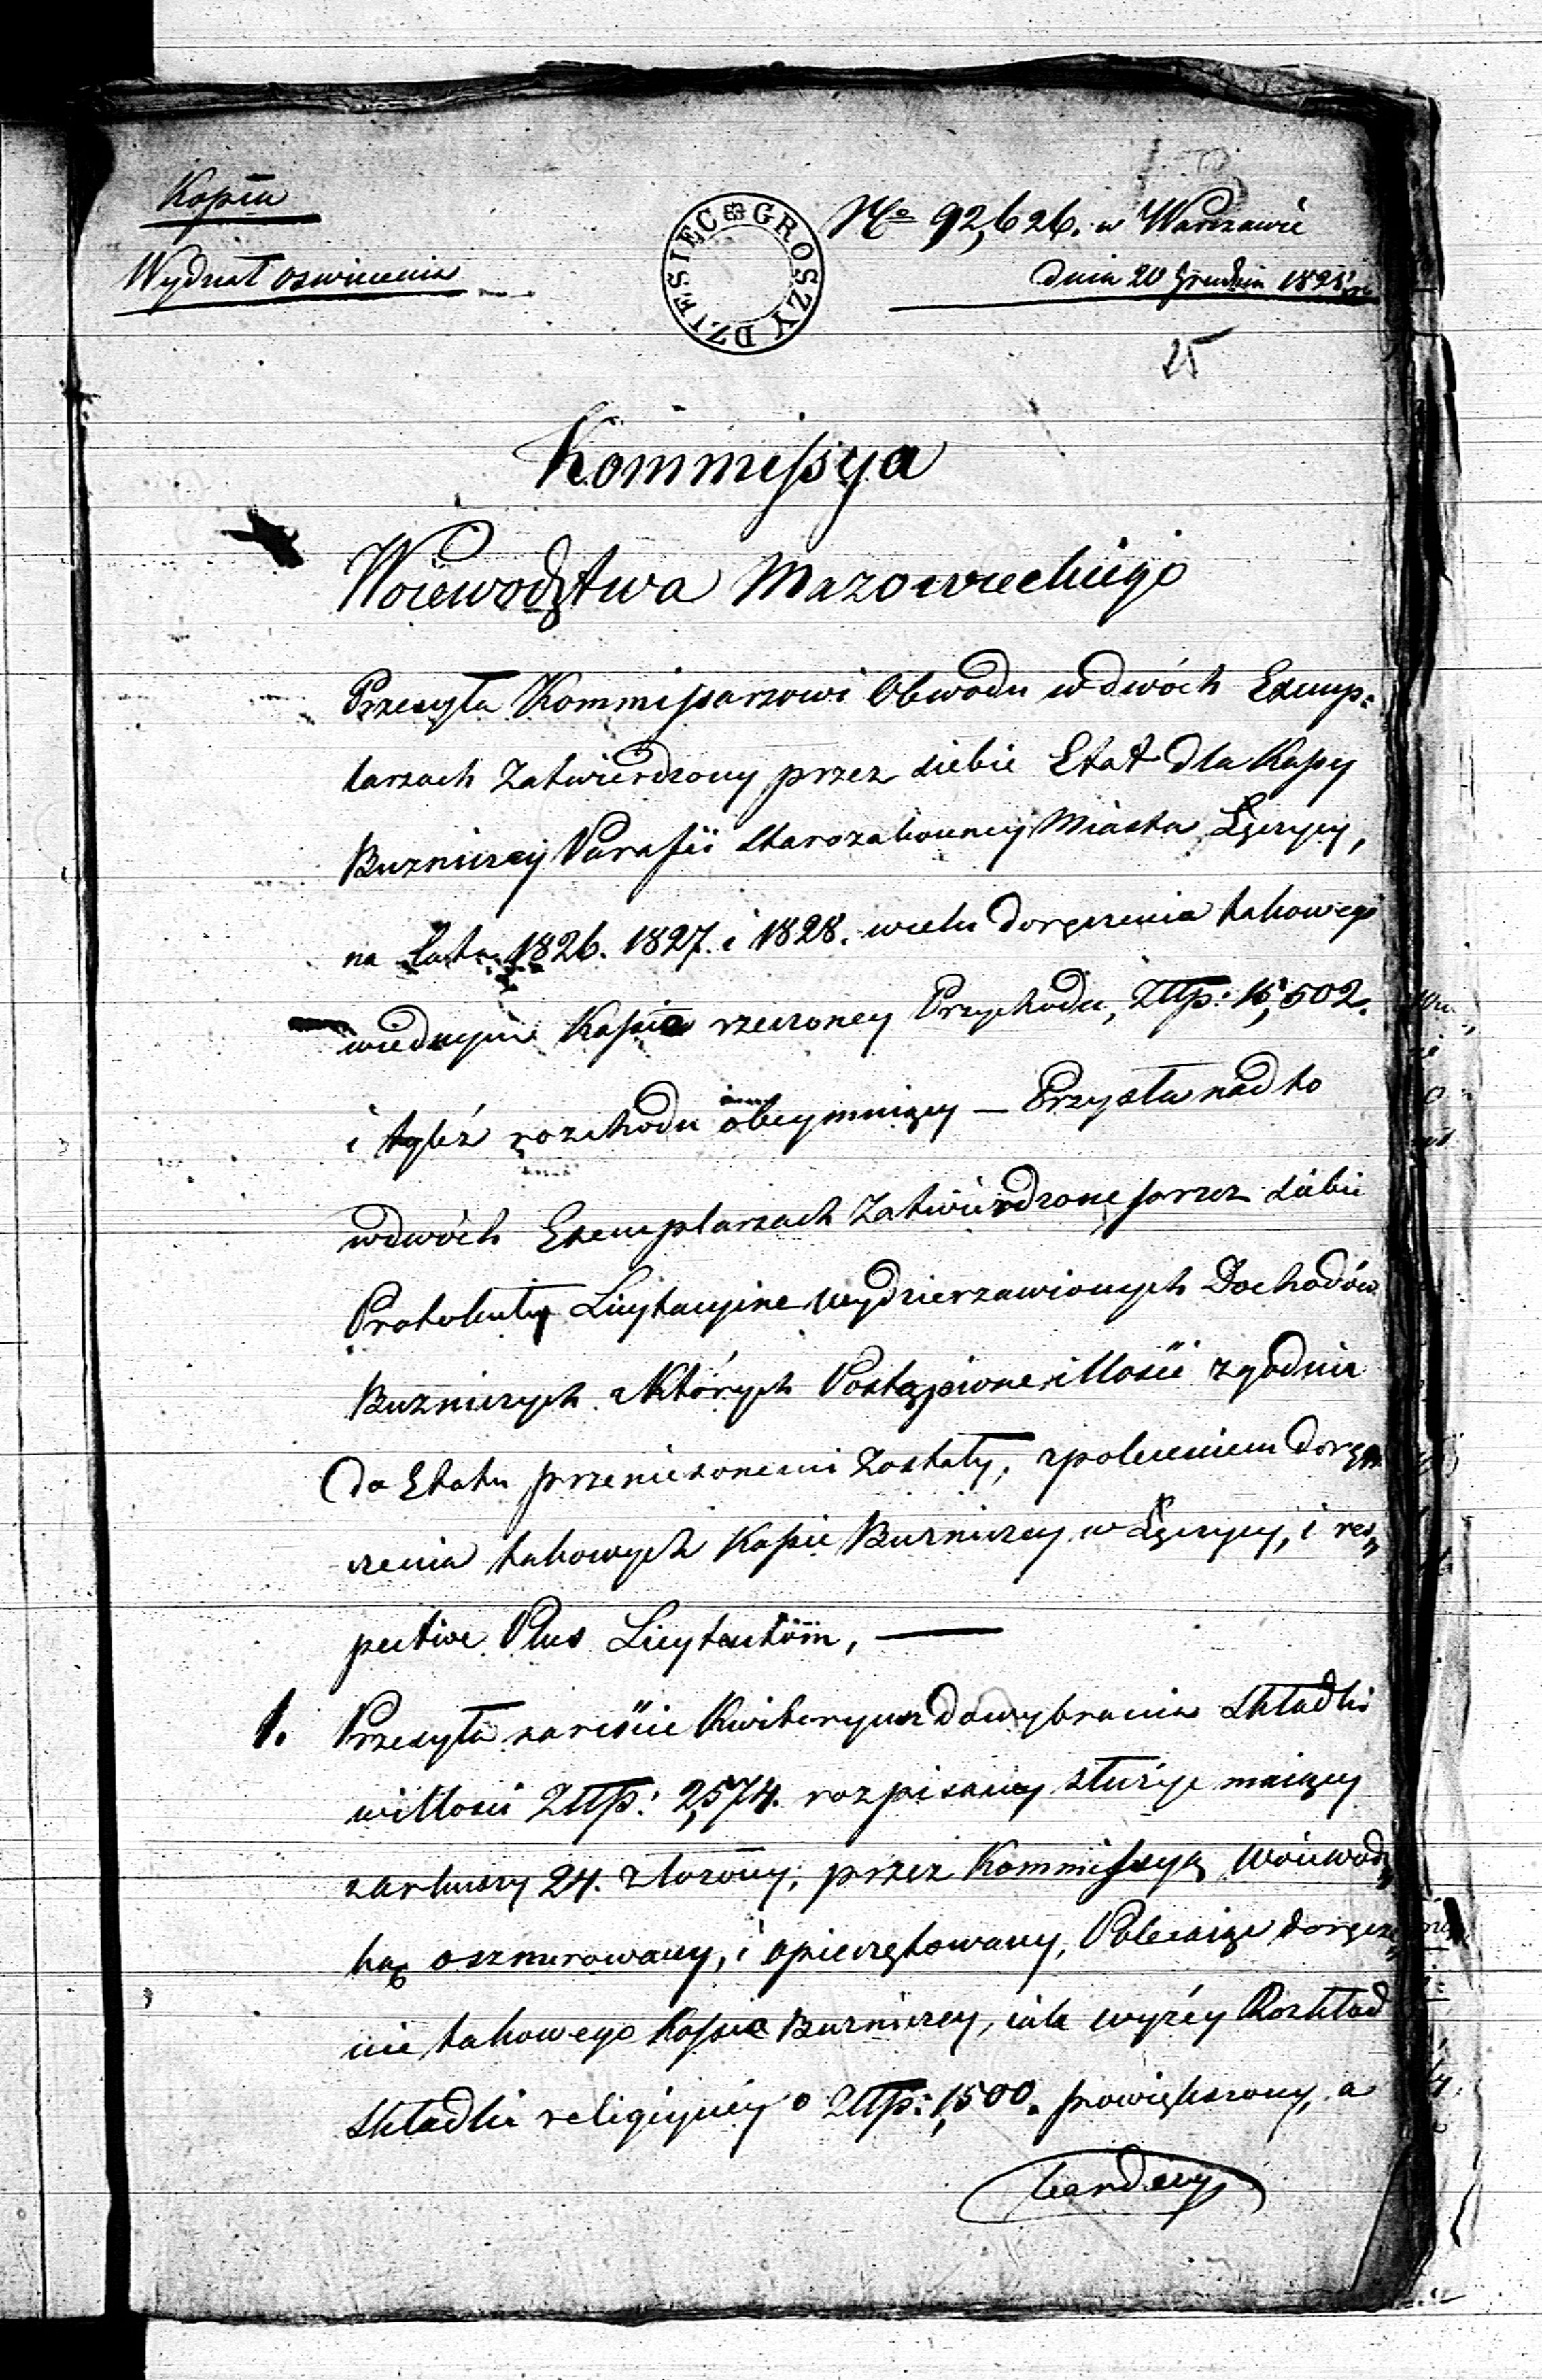 Kopia
Wydział oswiecenia
DZIESIĘC GROSZY
No 92,626. w Warszawie
dnia 20 Grudnia 1825
25
Kommissya
Woiewodztwa Mazowieckiego
Przesyła Kommissarzowi Obwodu w dwóch Exemp=
larzach Zatwierdzony przez siebie Etat dla Kassy
Bużniczey Parafii Starozakonney Miasta Łęczycy,
na Lata 1826. 1827. i 1828. w celu doręczenia takowego
wiednym Kassie rzeczoney Przychodu, Złłp: 15,502.
i tyleż rozchodu obeymuiący — Przysyła nadto
w dwóch Exemplarzach Zatwierdzone przez siebie
Protokuły Licytacyine wydzierzawionych Dochodów
Bużniczych z Których Postąpione illości zgodnie
do Etatu przeniesionemi Zostały, z poleceniem doręn
czenia takowych Kassie Bużniczey w Łęczycy, i res„
pective Plus Licytantom, —
1. Przesyła nareście Kwitaryusz do wybrania Składki
w illości Złłp: 2,574. rozpisaney służyć maiący
z arkuszy 24. złożony, przez Kommissyą Woiewodz„
ką osznurowany, i opieczętowany, Polecaiąc doręcze„
nie takowego Kassie Bużniczey, iak wyżéy Rozkład
Składki religiynéy o Złłp: 1,500. powiększony, a